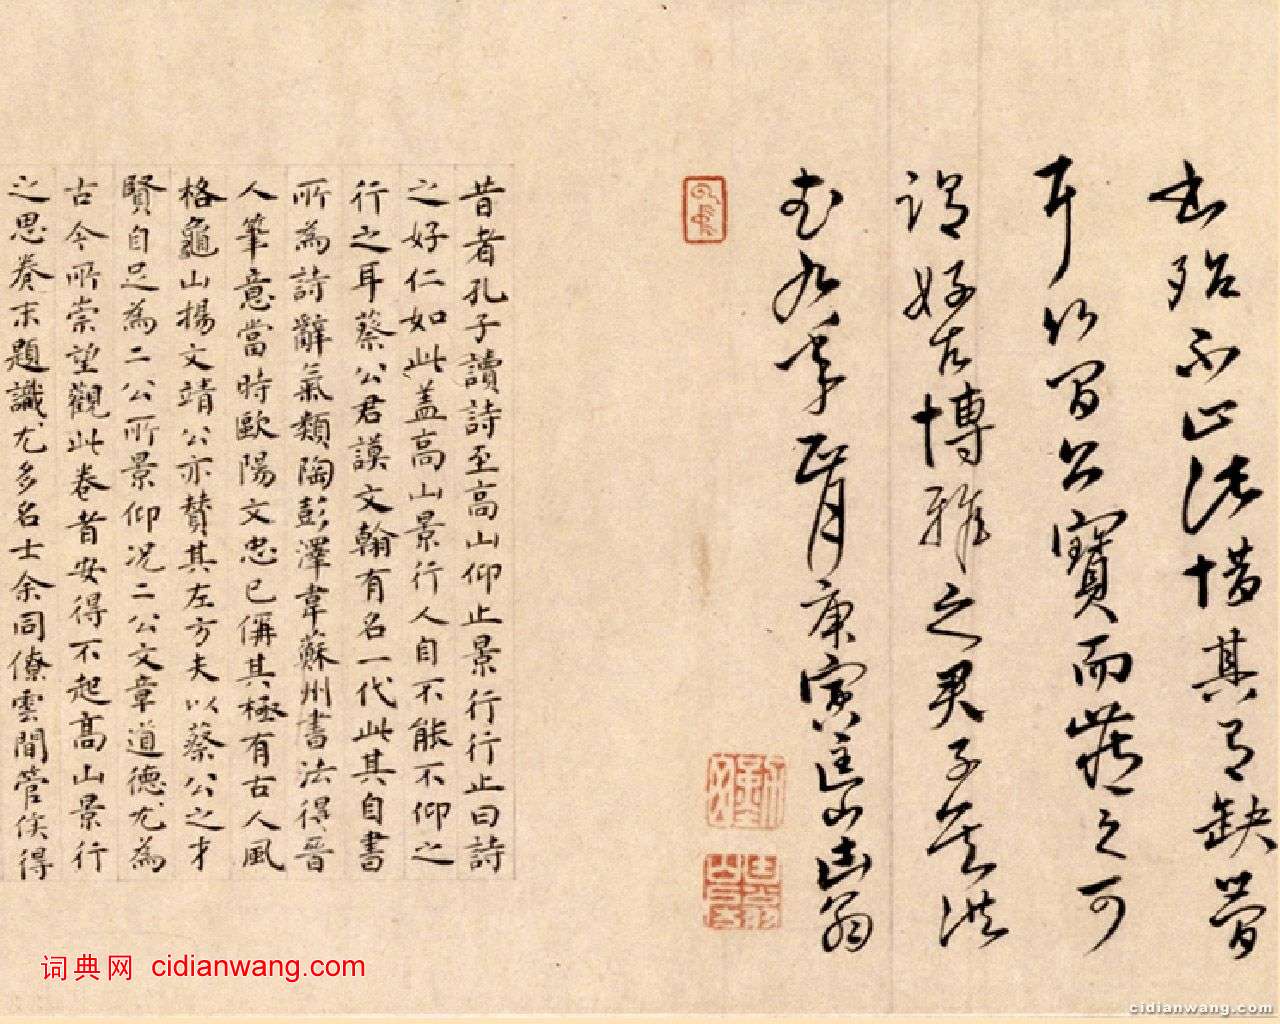 書殆不止此惜其有缺簡
耳竹間公寶而藏之可
謂好古博雅之君子矣洪
武九年正月庚寅匡山山翁
昔者孔子讀詩至高山仰止景行行止曰詩
之好仁如此盖高山景行人自不能不仰之
行之耳蔡公君謨文翰有名一代此其自書
所為詩辭氣類陶彭澤韋蘇州書法得晉
人筆意當時歐陽文忠已稱其極有古人風
格龜山楊文靖公亦賛其左方夫以蔡公之才
賢自足為二公所景仰况二公文章道德尤為
古今所崇望觀此卷者安得不起高山景行
之思卷末題識尤多名士余同僚雲間管侯得
词典网 cidianwang.com
cidianwang.com